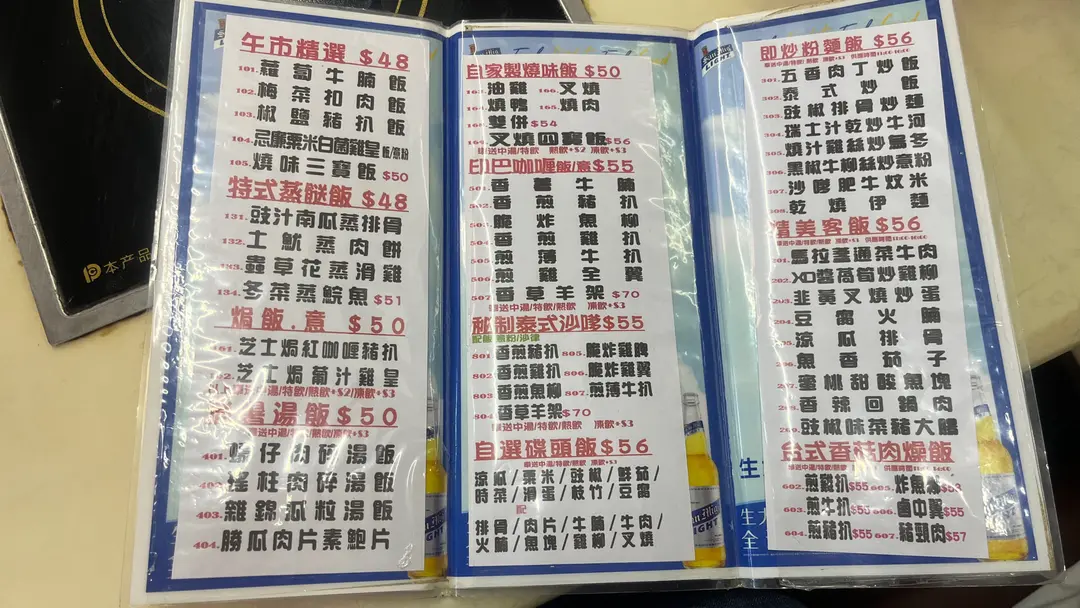 午市精選 $48
101. 蘿蔔牛腩飯
102. 梅菜扣肉飯
103. 椒鹽豬扒飯
104. 忌廉粟米白菌雞皇飯/意粉
105. 燒味三寶飯 $50
特式蒸餸飯 $48
131. 豉汁南瓜蒸排骨
132. 土魷蒸肉餅
133. 蟲草花蒸滑雞
134. 冬菜蒸鯇魚 $51
焗飯.意 $50
161. 芝士焗紅咖喱豬扒
162. 芝士焗葡汁雞皇
湯飯 $50
單送中湯/特飲/熱飲/凍飲+$3
401. 仔肉碎湯飯
402. 瑤柱肉碎湯飯
403. 雜錦瓜粒湯飯
404. 勝瓜肉片素鮑片
自家製燒味飯 $50
油雞 166. 叉燒
燒鴨 燒肉
雙併 $54
叉燒四寶飯 $56
單送中湯/特飲 熱飲+$2 凍飲+$3
印巴咖喱飯/意 $55
501. 香薯牛腩
502. 香煎豬扒
脆炸魚柳
504. 香煎雞扒
505. 煎薄牛扒
煎雞全翼
507. 香草羊架 $70
單送中湯/特飲/熱飲 凍飲+$3
秘制泰式沙嗲 $55
配飯/意粉/沙律
801. 香煎豬扒 805. 脆炸雞脾
802. 香煎雞扒 806. 脆炸雞翼
803. 香煎魚柳 807. 煎薄牛扒
804. 香草羊架 $70
單送中湯/特飲/熱飲 凍飲+$3
自選碟頭飯 $56
單送中湯/特飲/熱飲 凍飲+$3
涼瓜/粟米/豉椒/鮮茄/
時菜/滑蛋/枝竹/豆腐
配
排骨/肉片/牛腩/牛肉/
火腩/魚塊/雞柳/叉燒
即炒粉麵飯 $56
301. 五香肉丁炒飯
302. 泰式炒飯
303. 豉椒排骨炒麵
304. 瑞士汁乾炒牛河
305. 燒汁雞絲炒烏冬
306. 黑椒牛柳絲炒意粉
307. 沙嗲肥牛炆米
308. 乾燒伊麵
精美客飯 $56
201. 馬拉盞通菜牛肉
202. XO醬萵筍炒雞柳
203. 韭黃叉燒炒蛋
204. 豆腐火腩
205. 涼瓜排骨
206. 魚香茄子
207. 蜜桃甜酸魚塊
208. 香辣回鍋肉
209. 豉椒味菜豬大腸
台式香菇肉燥飯
602. 煎雞扒 $55 605. 炸魚柳 $53
603. 煎牛扒 606. 鹵中翼 $55
604. 煎豬扒 $55 607. 豬頸肉 $57
本产品